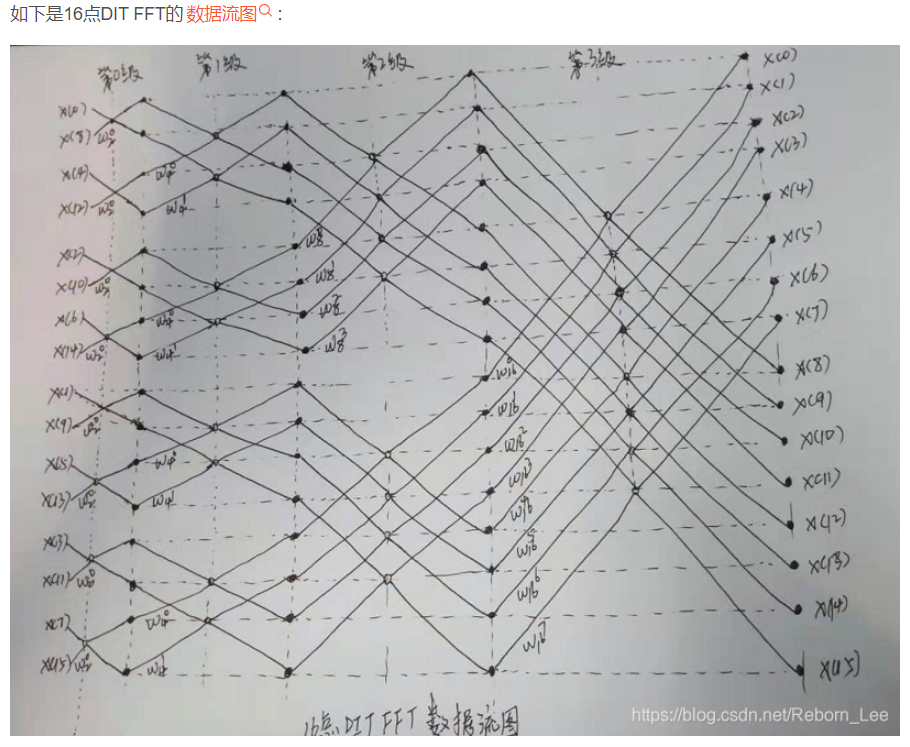 如下是16点DIT FFT的 数据流图：
第0级 第1级 第2级 第3级
X(0)
X(8) W₂⁰
X(4)
X(12) W₂⁰
X(2)
X(10) W₂⁰
X(6)
X(14) W₂⁰
X(1)
X(9) W₂⁰
X(5)
X(13) W₂⁰
X(3)
X(11) W₂⁰
X(7)
X(15) W₂⁰
W₄⁰
W₄¹
W₄⁰
W₄¹
W₄⁰
W₄¹
W₄⁰
W₄¹
W₈⁰
W₈¹
W₈²
W₈³
W₁₆⁰
W₁₆¹
W₁₆²
W₁₆³
W₁₆⁴
W₁₆⁵
W₁₆⁶
W₁₆⁷
X(0)
X(1)
X(2)
X(3)
X(4)
X(5)
X(6)
X(7)
X(8)
X(9)
X(10)
X(11)
X(12)
X(13)
X(14)
X(15)
16点DIT FFT 数据流图
https://blog.csdn.net/Reborn_Lee